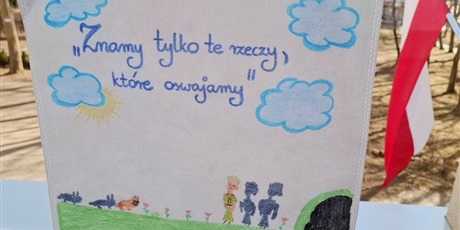 „Znamy tylko te rzeczy,
które oswajamy"